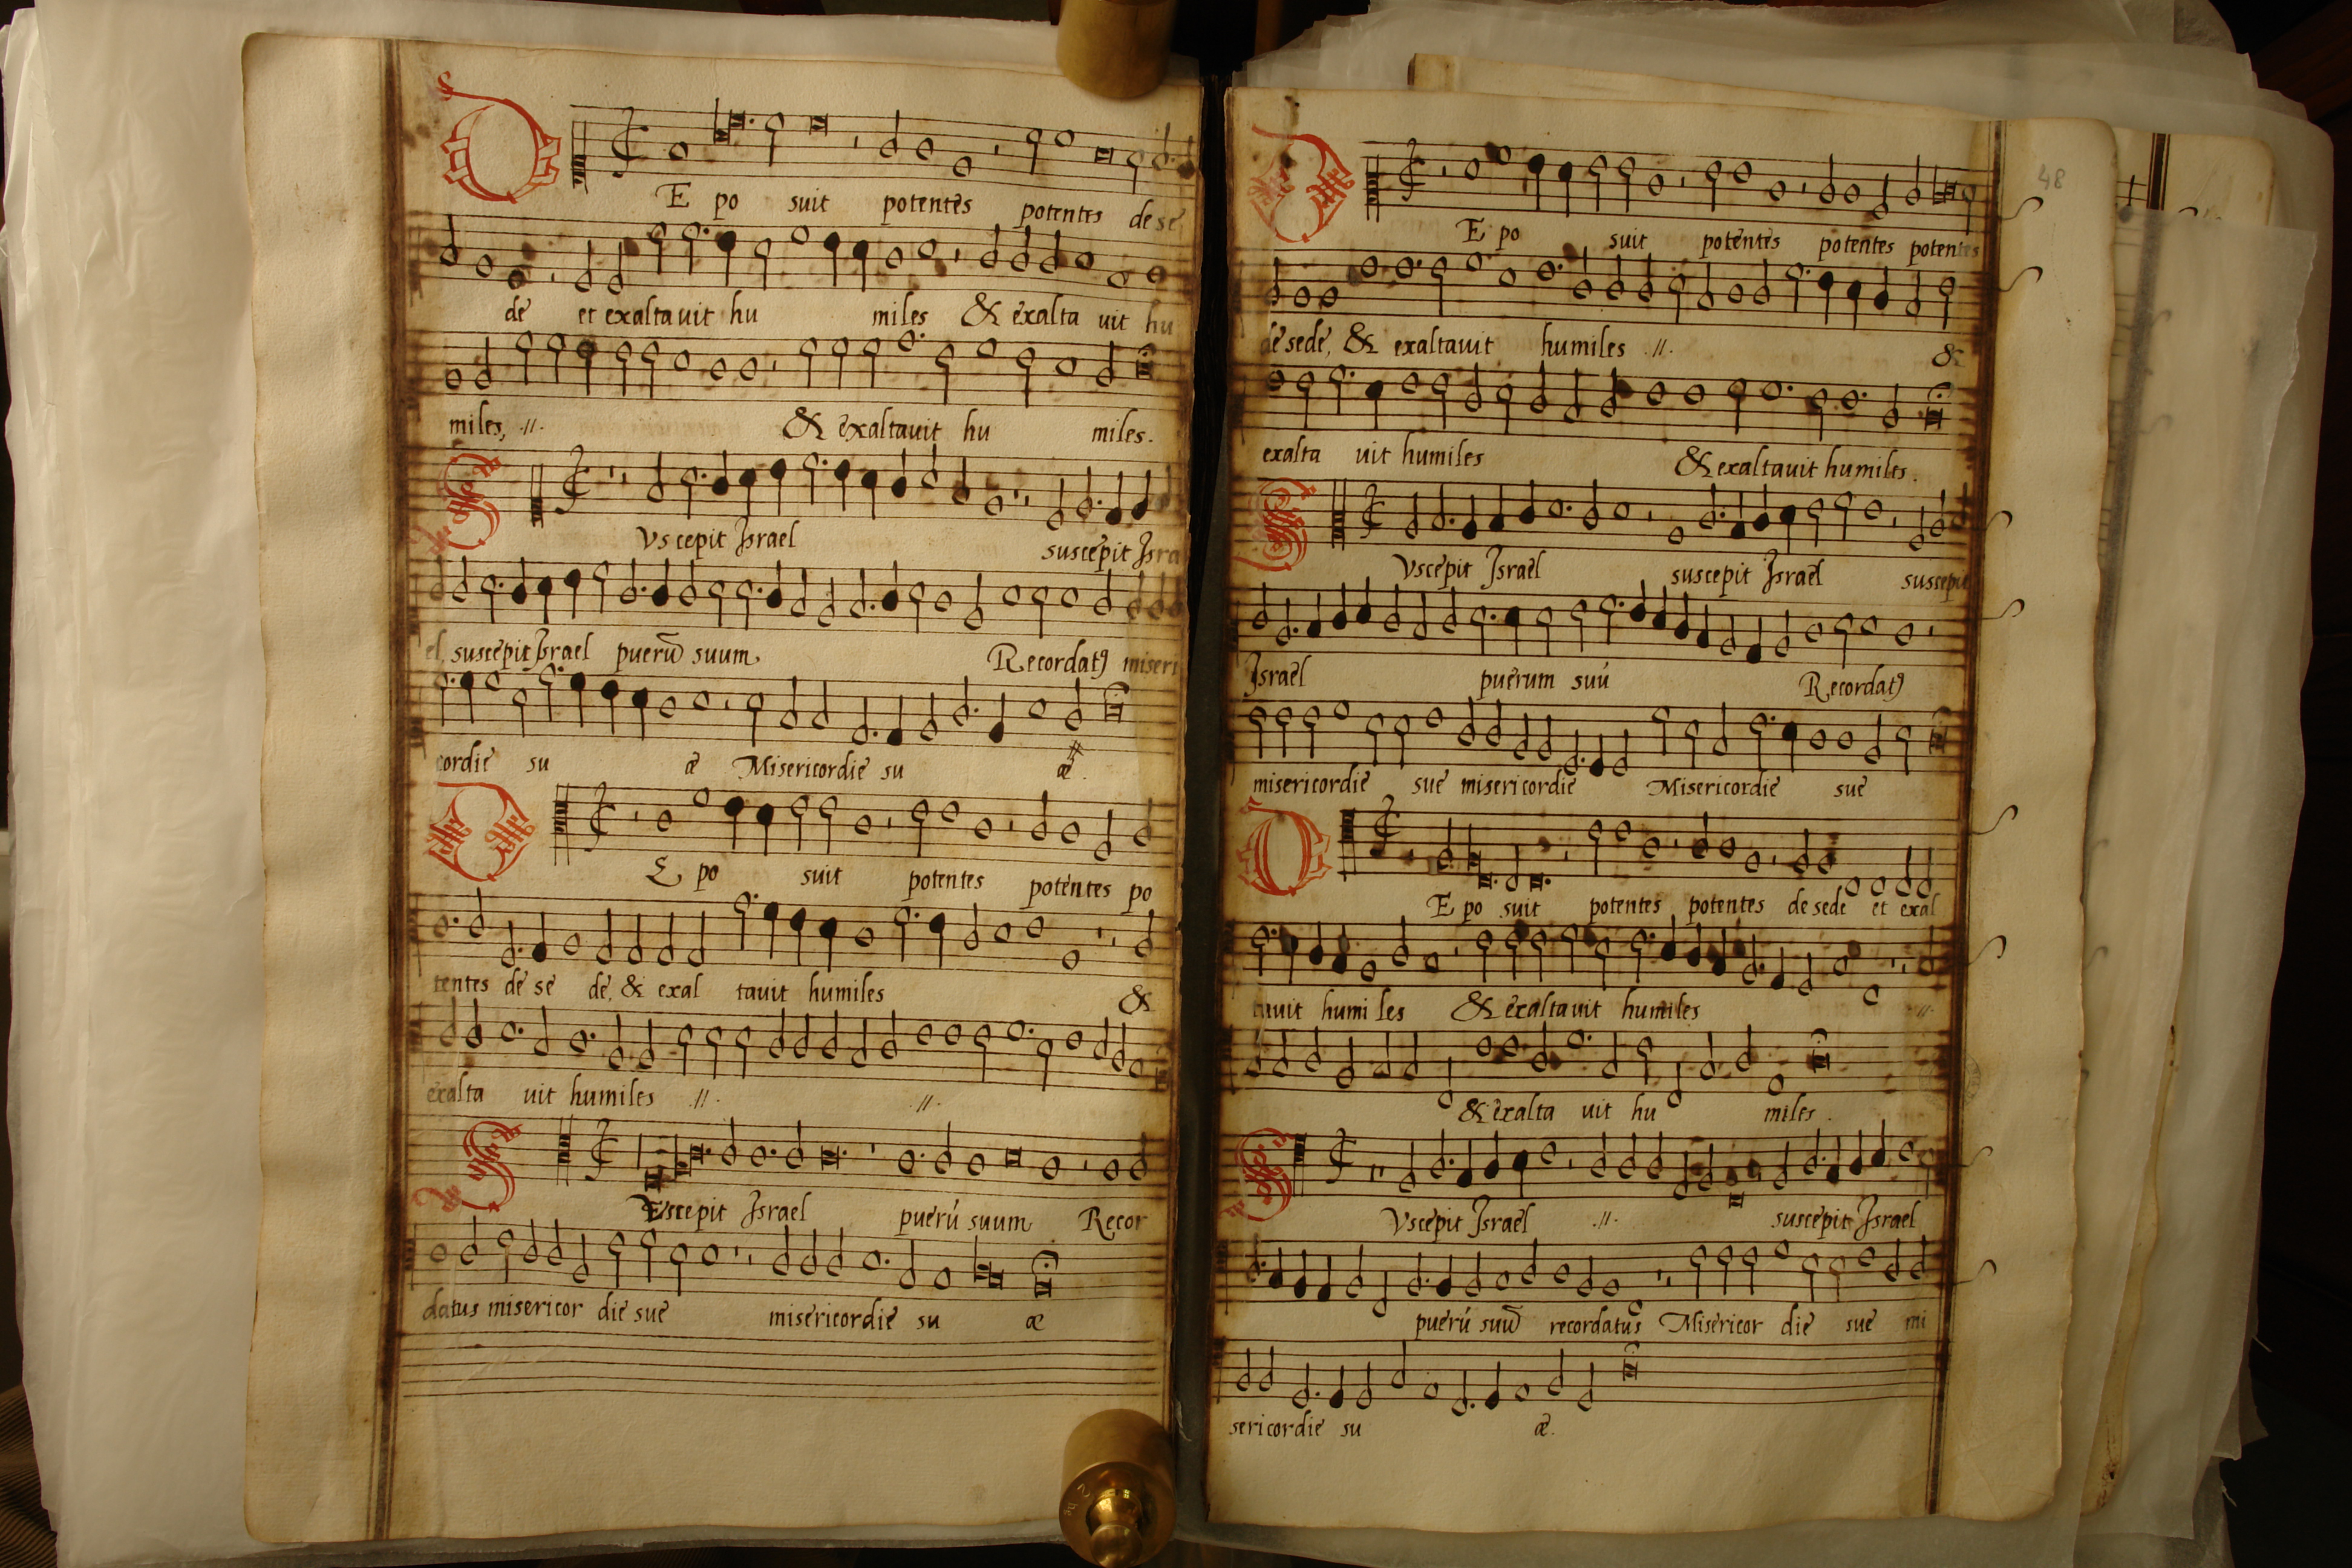 DE po suit potentes potentes de se
de et exaltauit hu miles & exalta uit hu
miles, .//. & exaltauit hu miles.
SVscepit Israel suscepit Isra
el, suscepit Israel puerũ suum Recordatꝰ miseri
cordie su æ Misericordie su æ.
DE po suit potentes potentes po
tentes de se de, & exal tauit humiles &
exalta uit humiles .//. .//.
SVscepit Israel puerú suum Recor
datus misericor die sue misericordie su æ
48
DE po suit potentes potentes potentes
de sede, & exaltauit humiles .//. &
exalta uit humiles & exaltauit humiles.
SVscepit Israel suscepit Israel suscepit
Israel puerum suú Recordatꝰ
misericordie sue misericordie Misericordie sue
DE po suit potentes potentes de sede et exal
tauit humi les & exaltauit humiles .//.
& exalta uit hu miles.
SVscepit Israel .//. suscepit Israel
puerú suũ recordatus Misericor die sue mi
sericordie su æ.